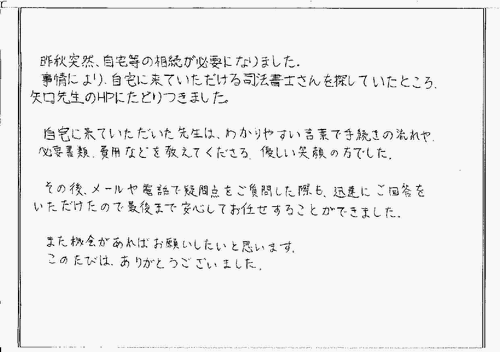 昨秋突然、自宅等の相続が必要になりました。
事情により、自宅に来ていただける司法書士さんを探していたところ、
矢口先生のHPにたどりつきました。
自宅に来ていただいた先生は、わかりやすい言葉で手続きの流れや、
必要書類、費用などを教えてくださる、優しい笑顔の方でした。
その後、メールや電話で疑問点をご質問した際も、迅速にご回答を
いただけたので最後まで安心してお任せすることができました。
また機会があればお願いしたいと思います。
このたびは、ありがとうございました。